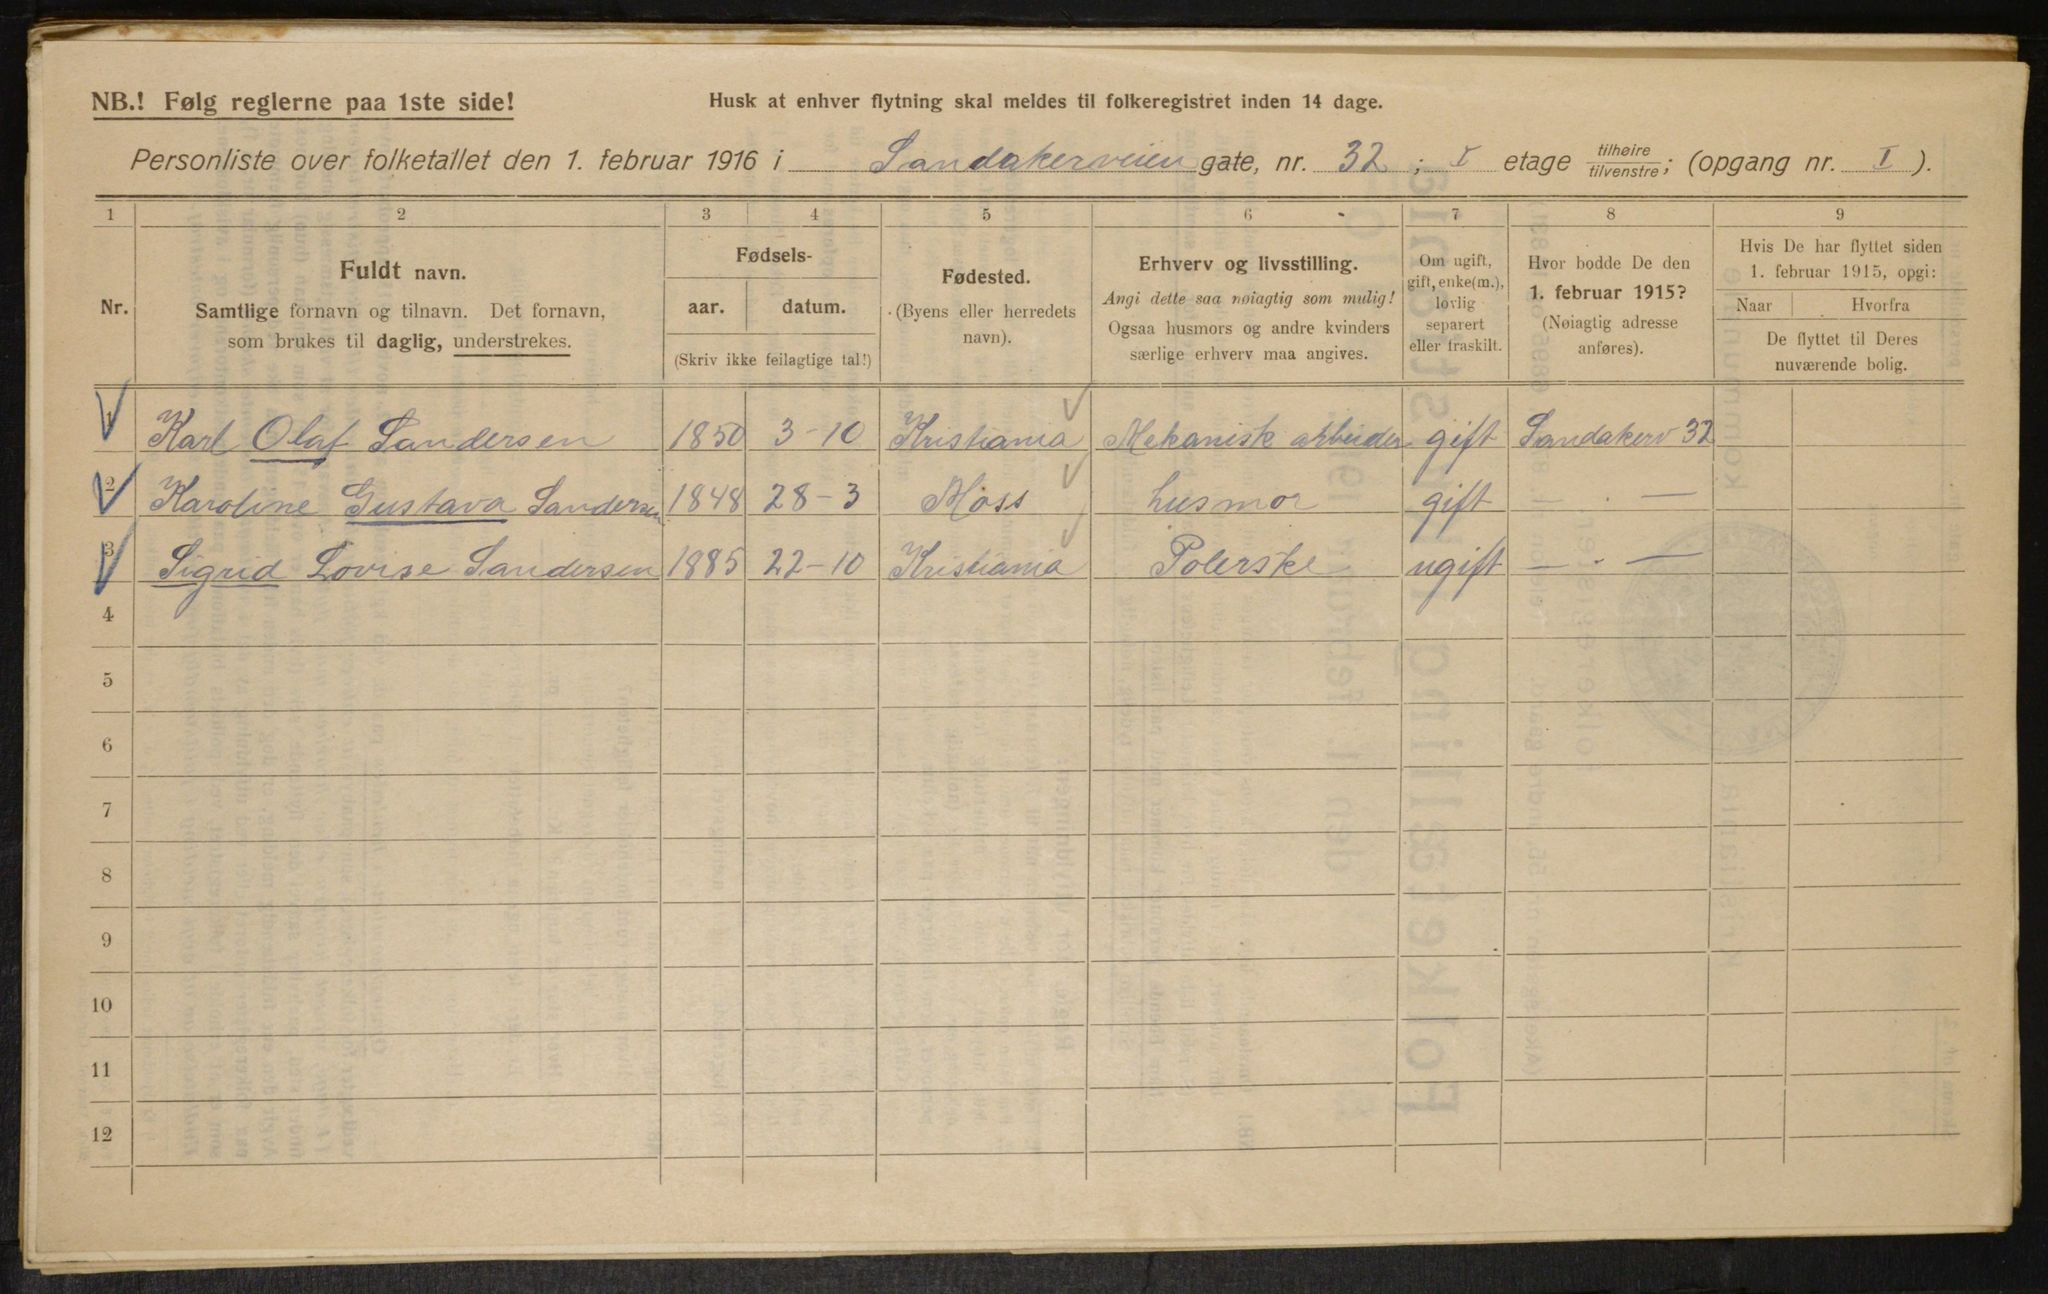 NB.! Følg reglerne paa 1ste side!
Husk at enhver flytning skal meldes til folkeregistret inden 14 dage.
Personliste over folketallet den 1. februar 1916 i Sandakerveien gate, nr. 32 ; I etage tilhøire/tilvenstre; (opgang nr. I ).
1 2 3 4 5 6 7 8 9
Nr.
Fuldt navn.
Samtlige fornavn og tilnavn. Det fornavn,
som brukes til daglig, understrekes.
Fødsels-
aar. datum.
(Skriv ikke feilagtige tal!)
Fødested.
(Byens eller herredets
navn).
Erhverv og livsstilling.
Angi dette saa nøiagtig som mulig!
Ogsaa husmors og andre kvinders
særlige erhverv maa angives.
Om ugift,
gift, enke(m.),
lovlig
separert
eller fraskilt.
Hvor bodde De den
1. februar 1915?
(Nøiagtig adresse
anføres).
Hvis De har flyttet siden
1. februar 1915, opgi:
Naar Hvorfra
De flyttet til Deres
nuværende bolig.
1 Karl Olaf Sandersen 1850 3-10 Kristiania Mekanisk arbeider gift Sandakerv 32
2 Karoline Gustava Sandersen 1848 28-3 Moss husmor gift — . —
3 Sigrid Lovise Sandersen 1885 22-10 Kristiania Polerske ugift — . —
4
5
6
7
8
9
10
11
12